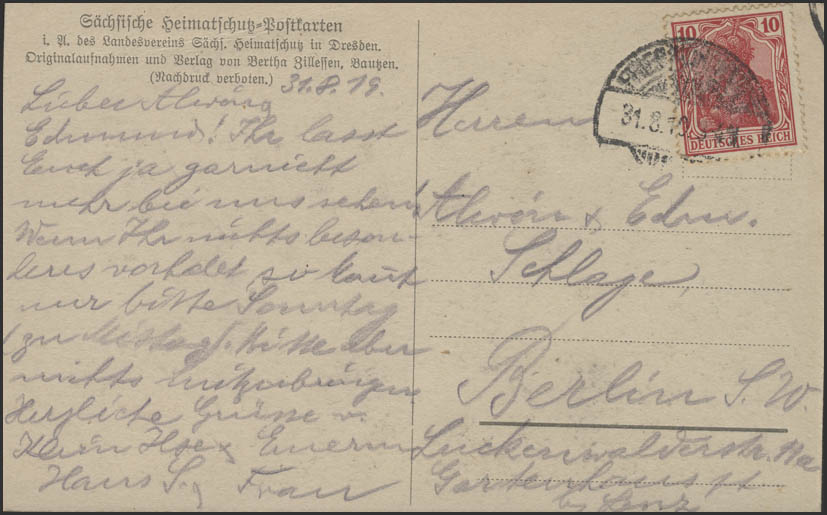 Sächsische Heimatschutz-Postkarten
i. A. des Landesvereins Sächs. Heimatschutz in Dresden.
Originalaufnahmen und Verlag von Bertha Zillessen, Bautzen.
(Nachdruck verboten.)
31.8.19.
Lieber Alwin,
Edmund! Ihr lasst
Euch ja garnicht
mehr bei uns sehen!
Wenn Ihr nichts beson-
deres vorhabet, so kommt
nur bitte Sonntag
(zu Mittag). Bitte aber
nichts mitzubringen
Herzliche Grüsse v.
Klein Ilse & Euerm
Hans S. Frau
10 10
DEUTSCHES REICH
31.8.19
Herren
Alwin & Edm.
Schlage,
Berlin S.W.
Luckenwalderstr.
Gartenhaus
bei Lenz